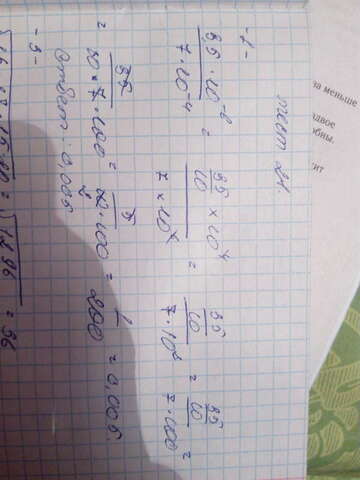 тест 21.
-1-
3,5 · 10⁻⁶ / 7 · 10⁻⁴ = 35/10 × 10⁴ / 7 × 10⁶ = 35/10 / 7 · 10² = 35/10 / 7 · 100 =
= 35 / 10 × 7 · 100 = 5 / 10 · 100 = 1/200 = 0,005.
Ответ: 0,005
-3-
= √1296 = 36
на меньше
двое